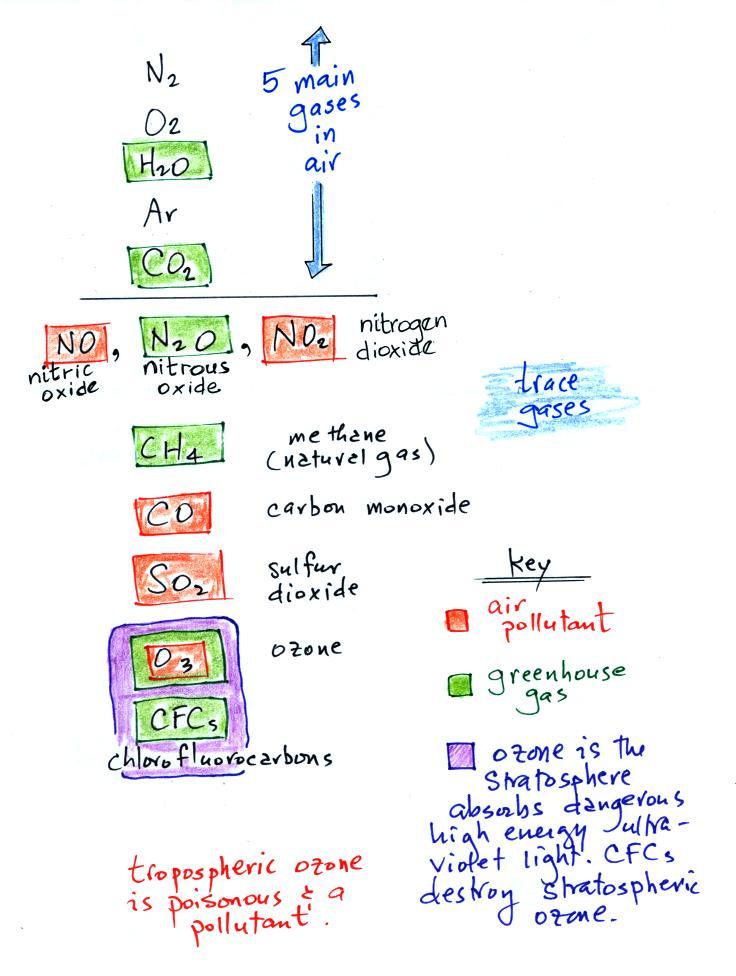 N₂
5 main
gases
in
air
O₂
H₂O
Ar
CO₂
NO, N₂O, NO₂
nitric
oxide
nitrous
oxide
nitrogen
dioxide
trace
gases
CH₄
methane
(natural gas)
CO
carbon monoxide
SO₂
sulfur
dioxide
O₃
ozone
CFCs
chlorofluorocarbons
key
air
pollutant
greenhouse
gas
ozone is the
stratosphere
absorbs dangerous
high energy ultra-
violet light. CFCs
destroy stratospheric
ozone.
tropospheric ozone
is poisonous & a
pollutant.